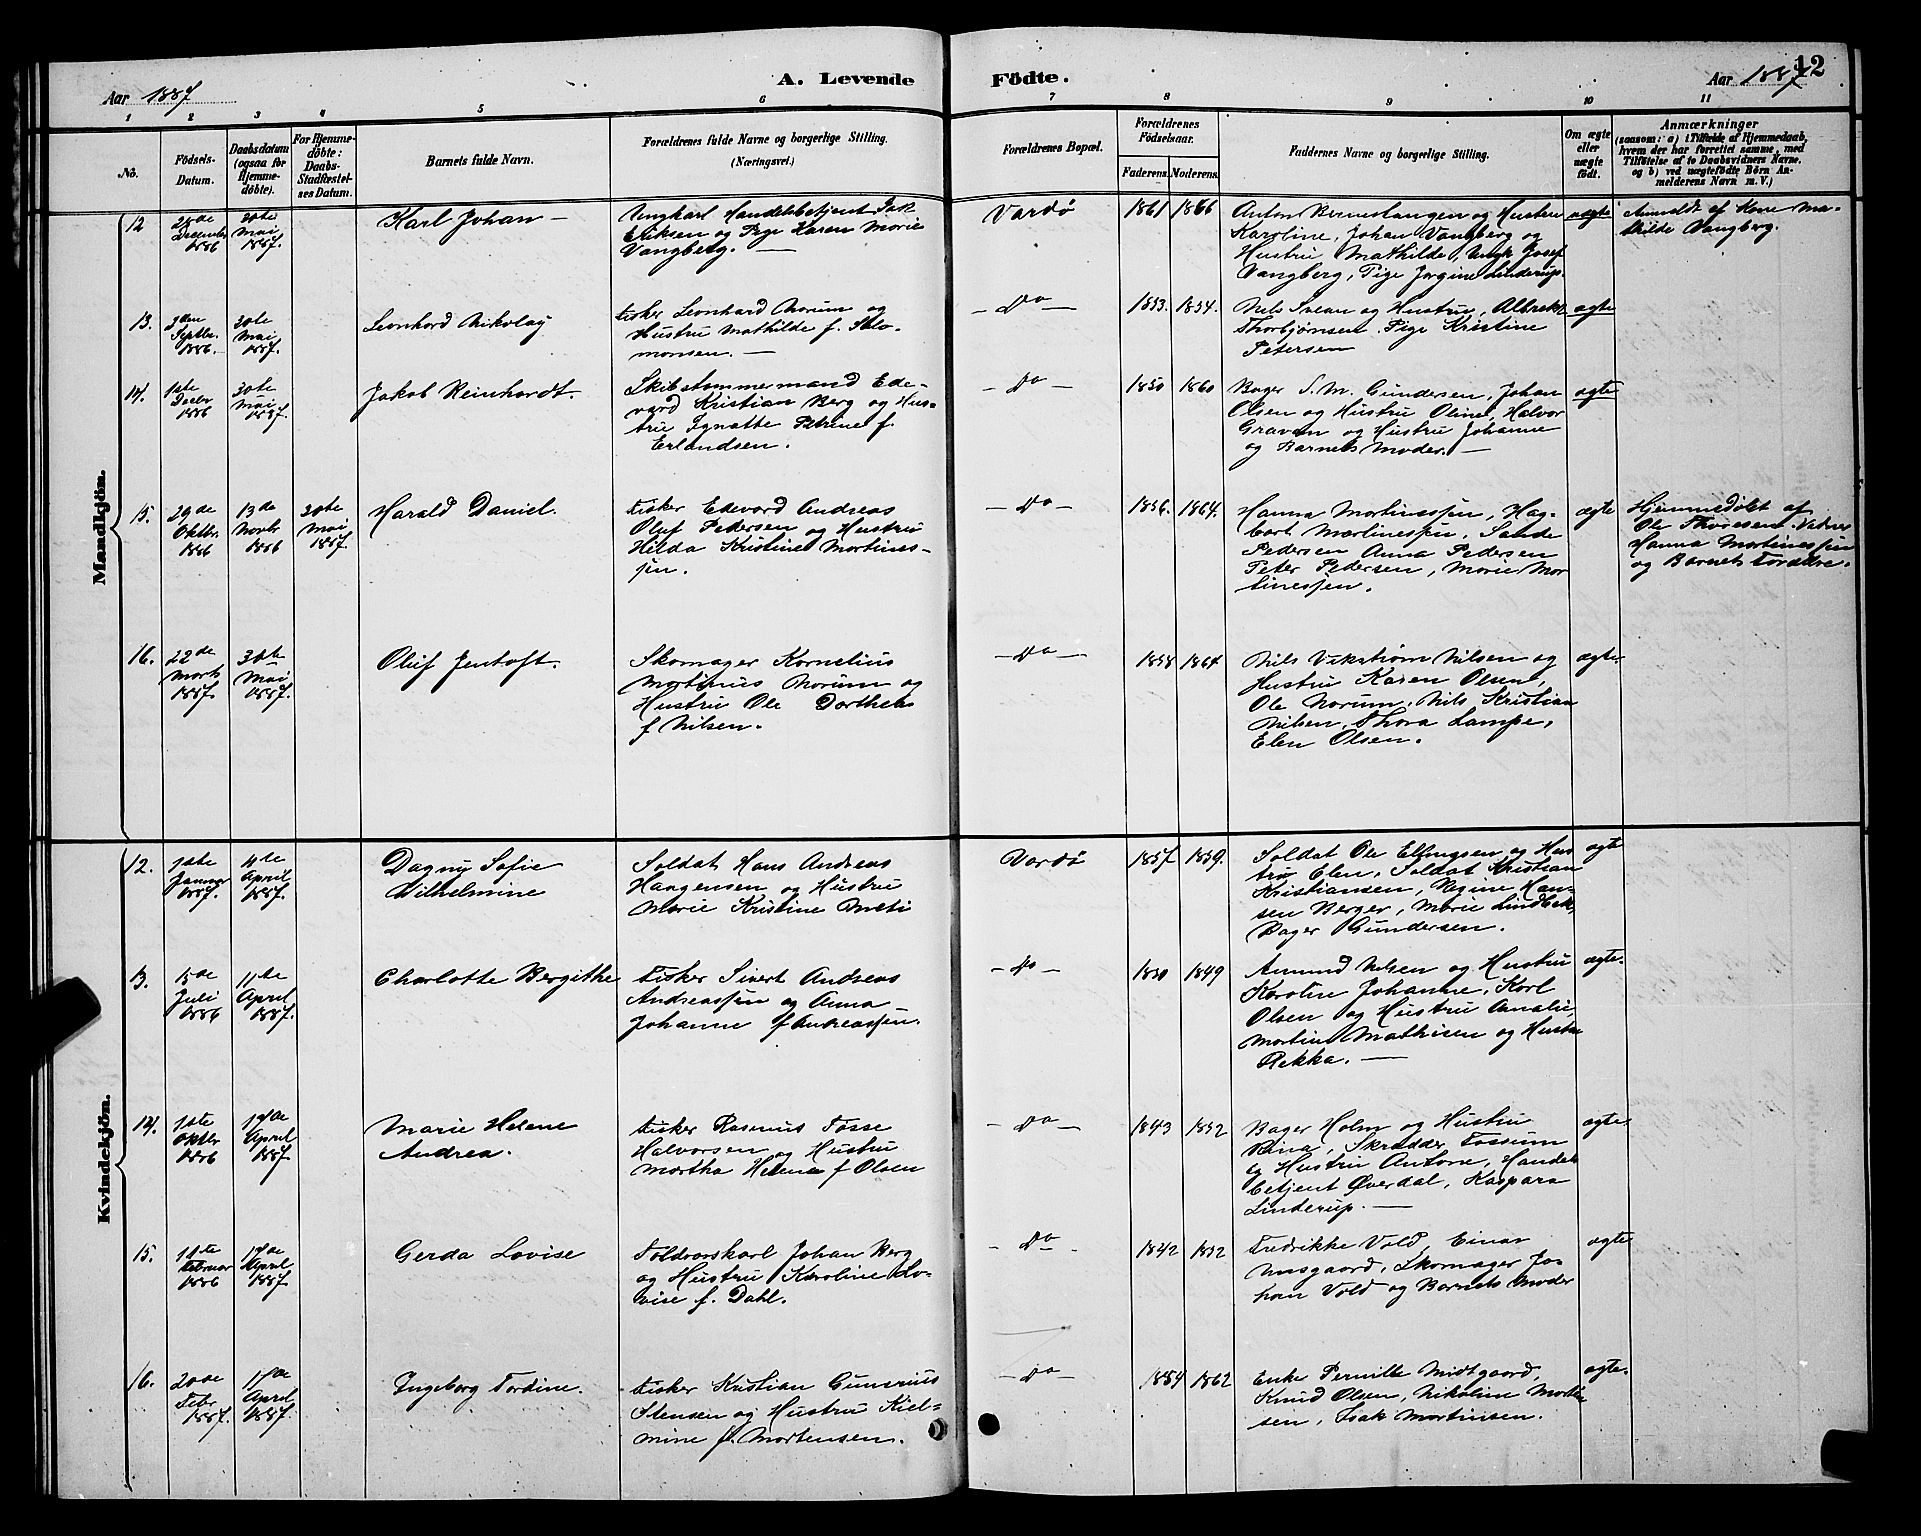 A. Levende Födte.
12
Aar 1887
Aar 1887
1 2 3 4 5 6 7 8 9 10 11
No.
Födsels-
Datum.
Daabsdatum
(ogsaa for
Hjemme-
döbte).
For Hjemme-
döbte:
Daabs-
Stadfæstel-
ses Datum.
Barnets fulde Navn.
Forældrenes fulde Navne og borgerlige Stilling.
(Næringsvei.)
Forældrenes Bopæl.
Forældrenes
Födselsaar.
Faderens. Moderens.
Faddernes Navne og borgerlige Stilling.
Om ægte
eller
uægte
födt.
Anmærkninger
(saasom: a) i Tilfælde af Hjemmedaab,
hvem der har forrettet samme, med
Tilföielse af to Daabsvidners Navne,
og b) ved uægtefödte Börn An-
melderens Navn m. V.)
Mandkjön.
12
Decembr
1886
30te
Mai
1887.
Karl Johan —
Ungkarl Handelsbetjent Isak
Eriksen og Pige Karen Marie
Vangberg. —
Vardø
1861 1866
Karoline, Johan Vangberg og
Hustru Mathilde, Ungk Josef
Vangberg, Pige Jørgine Linderup.
uægte
Anmeldt af Kone Ma-
thilde Vangberg.
13.
3den
Septbr.
1886.
30te
Mai
1887.
Leonhord Nikolay
Fisker Leonhard Norum og
Hustru Mathilde f. Salo-
monsen. —
— Do —
1853. 1854.
Nils Svean og Hustru, Albrekt
Thorbjørnsen. Pige Kristine
Petersen
ægte
14.
1ste
Decbr
1886
30te
Mai
1887.
Jakob Reinhardt.
Skibstømmermand Ede-
vard Kristian Berg og Hus-
tru Ignatte Petrine f.
Erlandsen.
— Do —
1850 1860
Bager S. M. Gundersen, Johan
Olsen og Hustru Oline, Halvor
Graven og Hustru Johanne
og Barnets Moder. —
ægte
15.
29de
Oktbr.
1886
13de
Novbr
1886
30te
Mai
1887.
Harald Daniel.
Fisker Edevard Andreas
Oluf Pedersen og Hustru
Hilda Kristine Martines-
sen.
— Do —
1856. 1864.
Hanna Martinessen, Hag-
bart Martinessen. Sande
Pedersen Anna Pedersen
Peter Pedersen, Marie Mar
tinessen.
ægte
Hjemmedøbt af
Ole Thoresen. Vidner
Hanna Martinessen
og Barnets Forældre.
16.
22de
Marts
1887.
30te
Mai
1887.
Oluf Jentoft.
Skomager Kornelius
Martinus Norum og
Hustru Ole Dorthea
f Nilsen.
— Do —
1858 1864
Nils Vikstrøm Nilsen og
Hustru Karen Olsen,
Ole Norum, Nils Kristian
Nilsen, Thora Lampe,
Elen Olsen.
ægte.
Kvindekjön.
12.
1ste
Januar
1887.
11te
April
1887.
Dagny Sofie
Wilhelmine
Soldat Hans Andreas
Haagensen og Hustru
Marie Kristine
Vardø
1857 1859.
Soldat Ole Ellingsen og Hus
tru Elen, Soldat Kristian
Kristiansen, Regine Han-
sen Berger, Marie Lindbæk,
Bager Gundersen.
ægte
13.
15de
Juli
1886
11te
April
1887.
Charlotte Bergithe
Fisker Sivert Andreas
Andreassen og Anna
Johanne f Andreassen.
— Do —
1850 1849
Amund Nilsen og Hustru
Karolin Johanne, Karl
Olsen og Hustru Amalie,
Martin Mathisen og Hustru
Rekka. —
ægte.
14.
1ste
Oktbr
1886
17de
April
1887.
Marie Helene
Andrea.
Fisker Rasmus Fosse
Halvorsen og Hustru
Martha Helene f Olsen
— Do —
1843 1852
Bager Holm og Hustru
Rina, Skrædder Fossum
og Hustru Antone, Handels
betjent Øverdal, Kaspara
Linderup. —
ægte.
15.
11te
Februar
1886
17de
April
1887.
Gerda Lovise
Toldvorskarl Johan Berg
og Hustru Karoline Lo-
vise f. Dahl.
— Do —
1842 1852
Fredrikke Vold, Einar
Musgaard, Skomager Jo-
han Vold og Barnets Moder
ægte
16.
20de
Febr
1887.
17de
April
1887.
Ingeborg Tordine.
Fisker Kristian Gunerius
Stensen og Hustru Kiel-
mine f. Mortensen.
— Do —
1862
Enke Pernille Midtgaard,
Knud Olsen, Nikoline Morten
sen, Isak Mortinsen.
ægte.